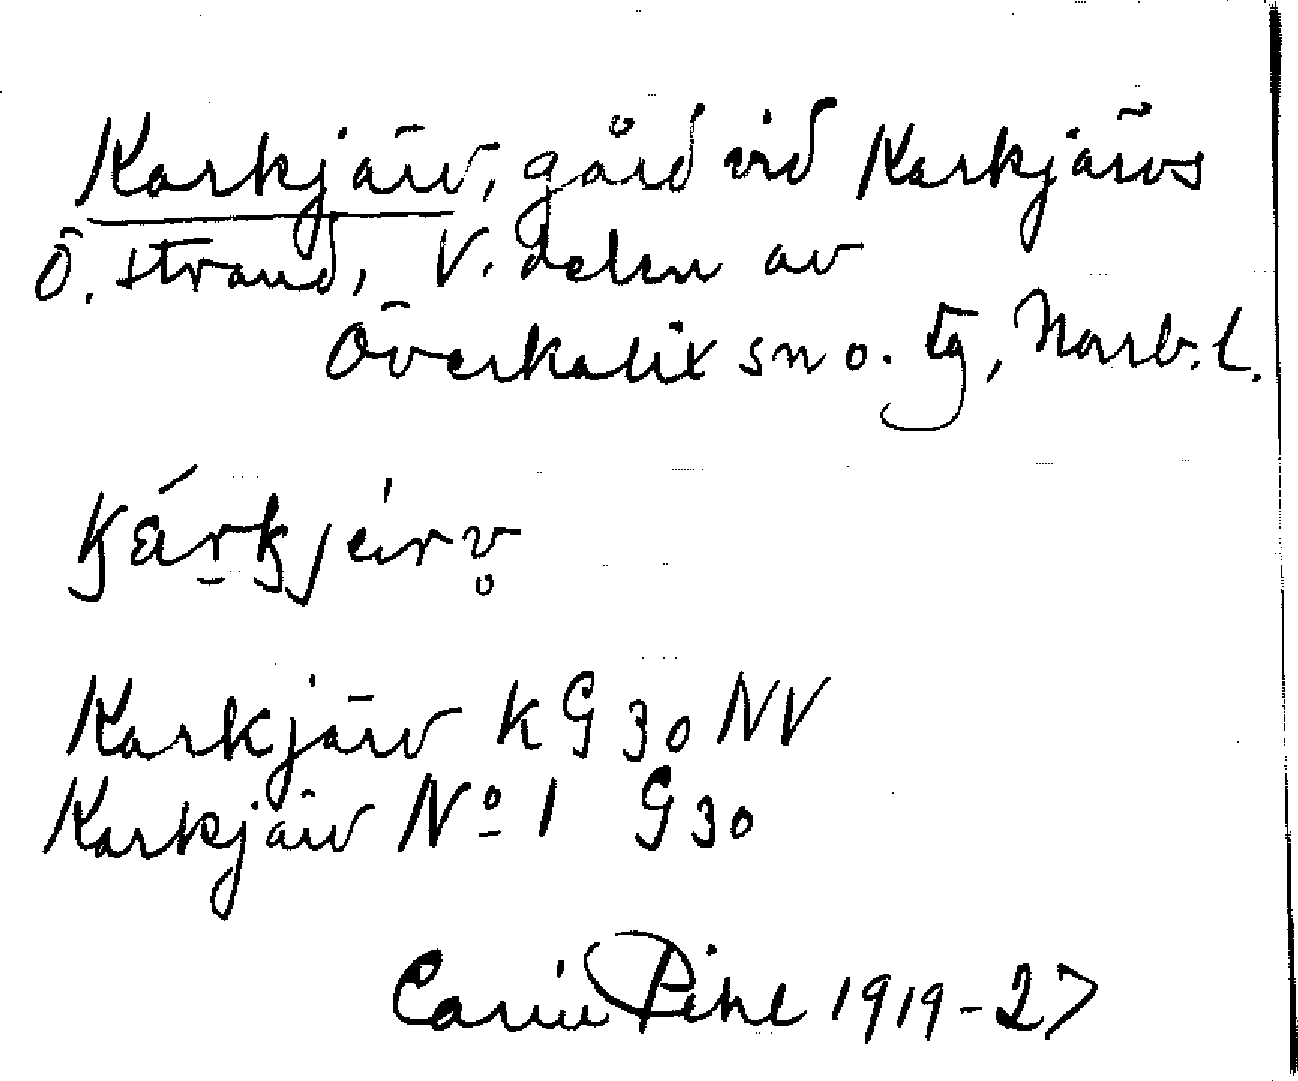 Karkjärv, gård vid Karkjärvs
Ö. strand, V. delen av
Överkalix sn o. tg, Norrb. l.
Karkjärv kG 30 NV
Karkjärv Nº 1 G 30
Carin Pihl 1919-27